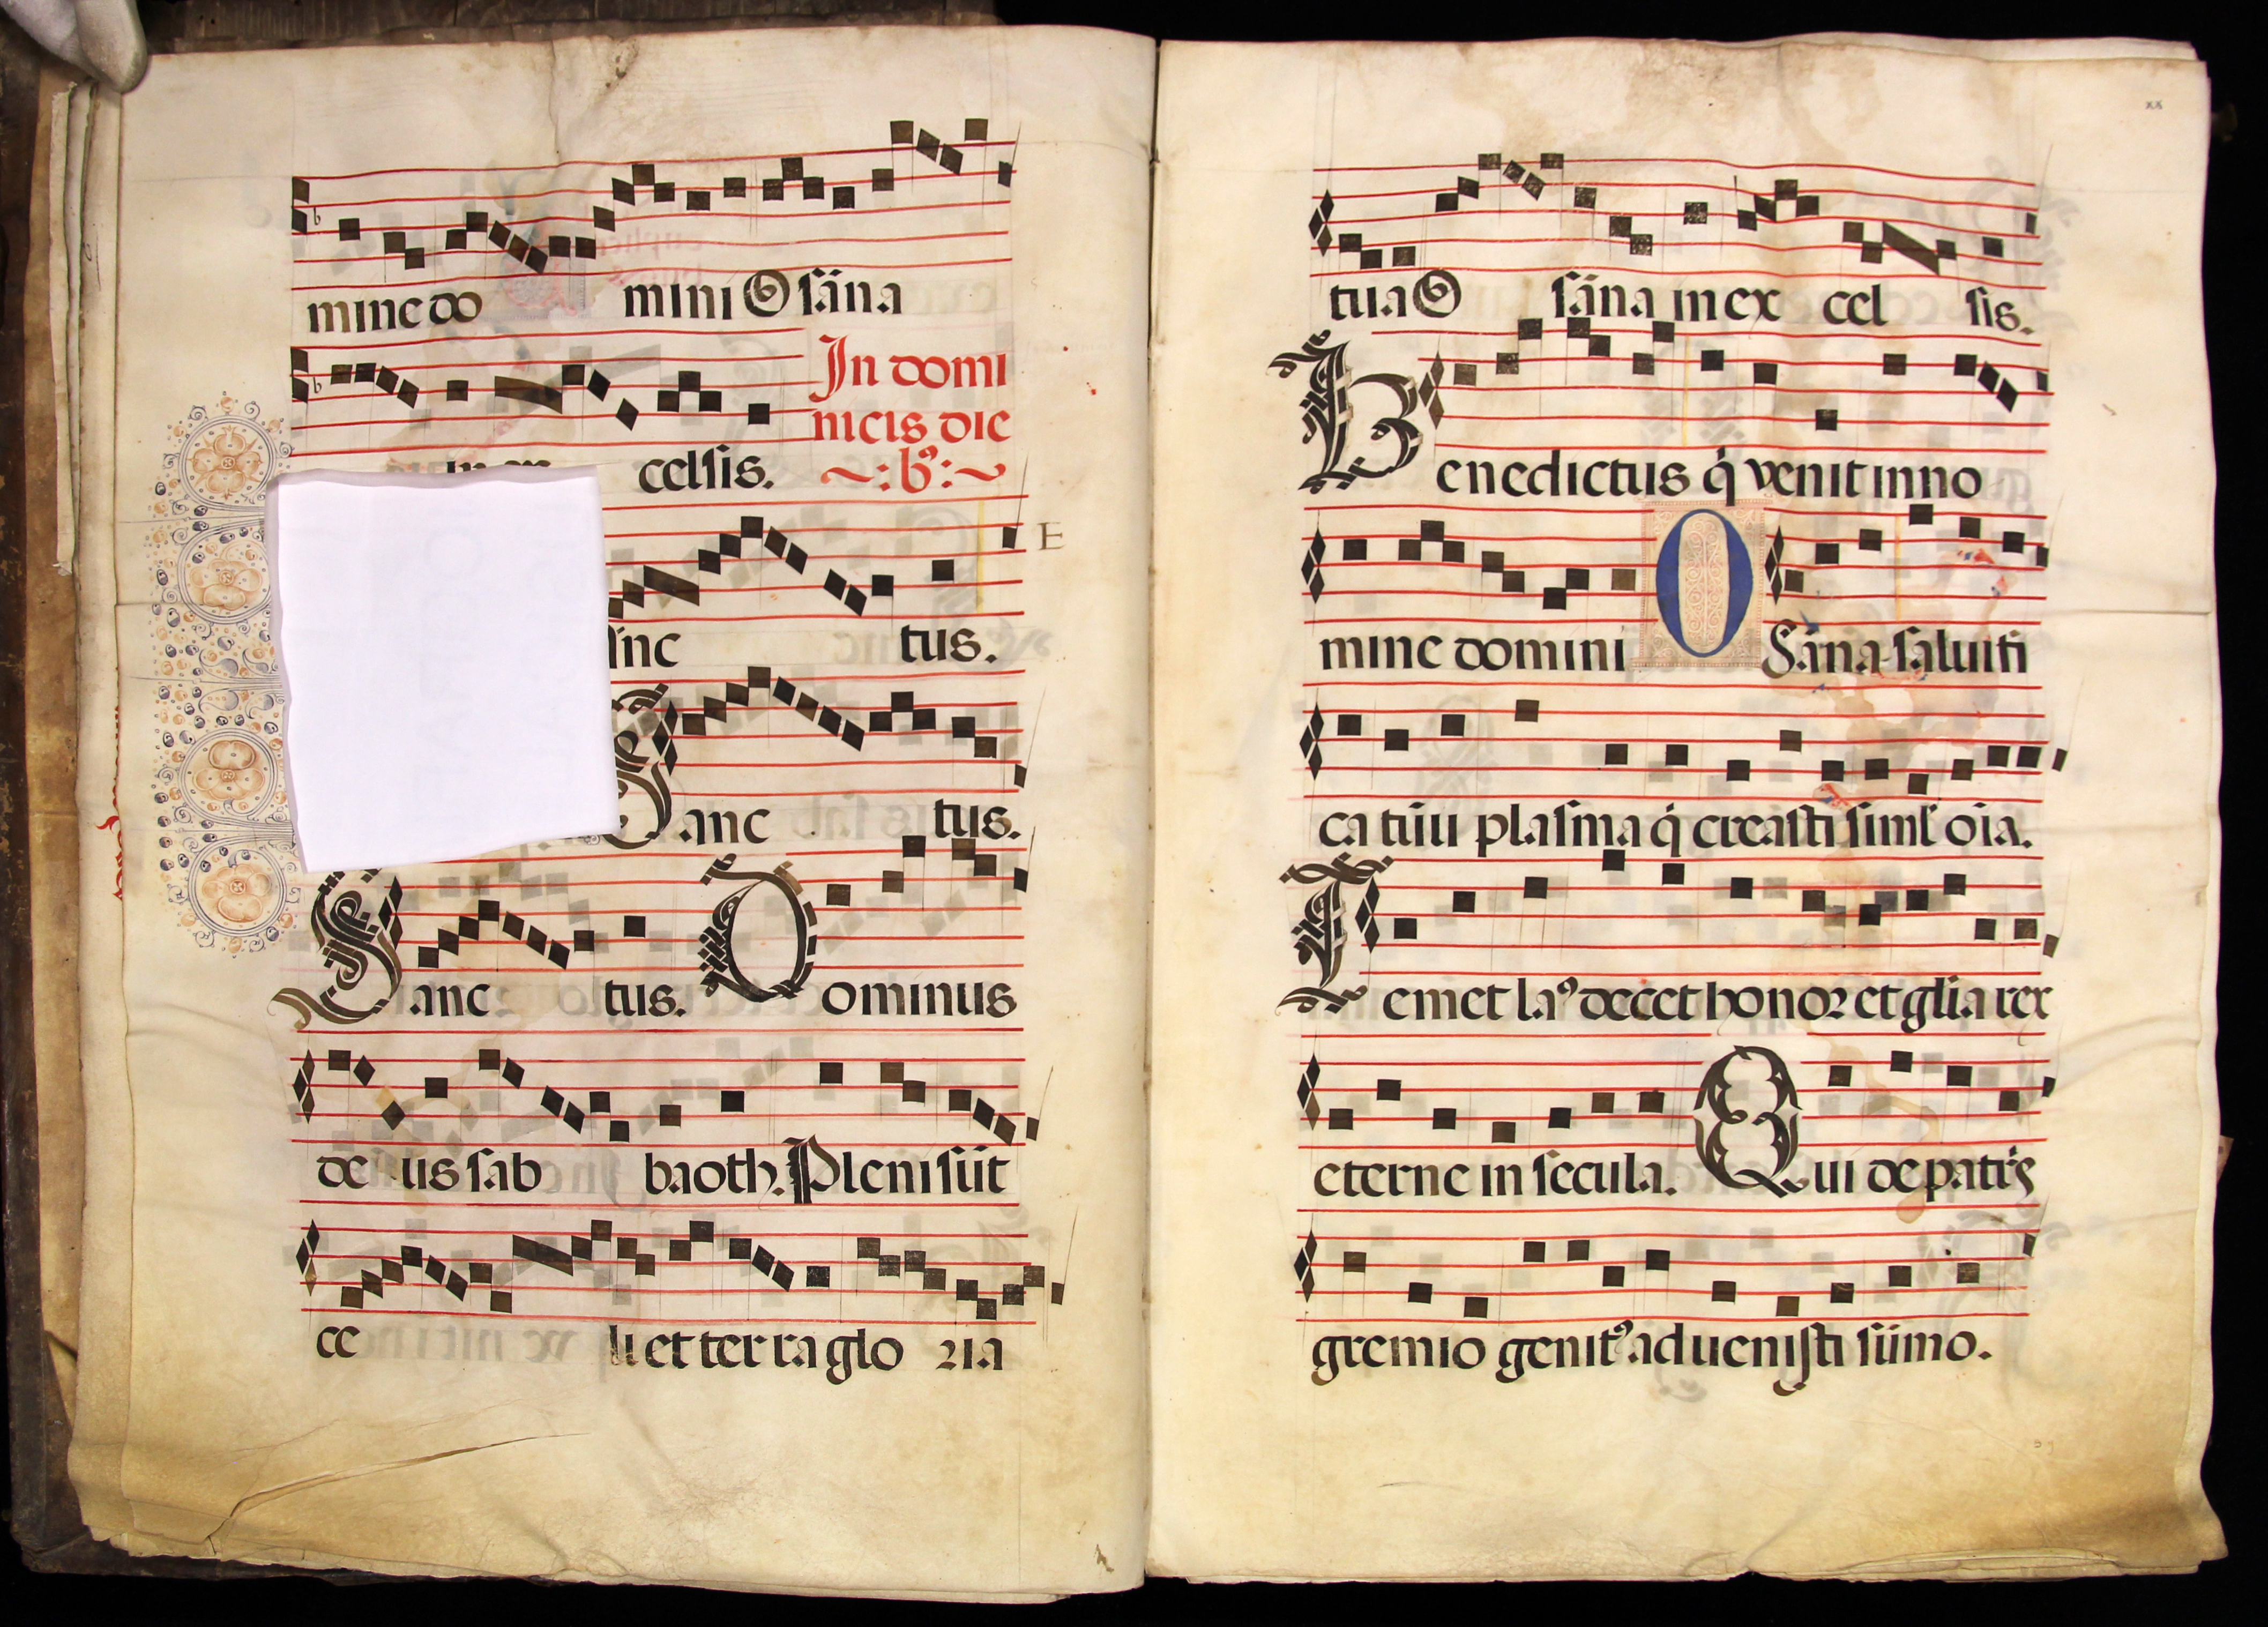 mine do mini O sāna
celsis.
In domi
nicis die
~:bꝰ:~
E
tus.
Sanc tus.
Sanc tus. Dominus
de us sab baoth. Pleni sūt
ce li et ter ra glo ria
xx
tua O sāna in ex cel sis.
Benedictus q̇ venit in no
mine domini OSāna saluiti
ca tūū plasma q̇ creasti siml̕ oīa.
emet laꝰ decet honor et glīa rex
eterne in secula. Qui de patris
gremio genitꝰ aduenisti sūmo.